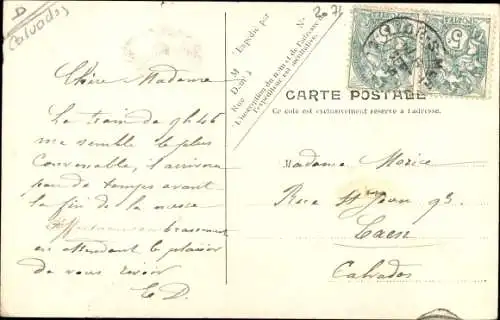 D
Calvados
Chère Madame
Le train de 9h46
me semble le plus
convenable, il arrivera
peu de temps avant
la fin de la messe
Affectueux embrassement
en attendant le plaisir
de vous revoir
E D.
Expédié par
M
Dem.t à
Rue
N°
L'inscription du nom et de l'adresse de
l'expéditeur est facultative.
CARTE POSTALE
Ce côté est exclusivement réservé à l'adresse.
Madame Morice
Rue St Jean 93
Caen
Calvados
5
5